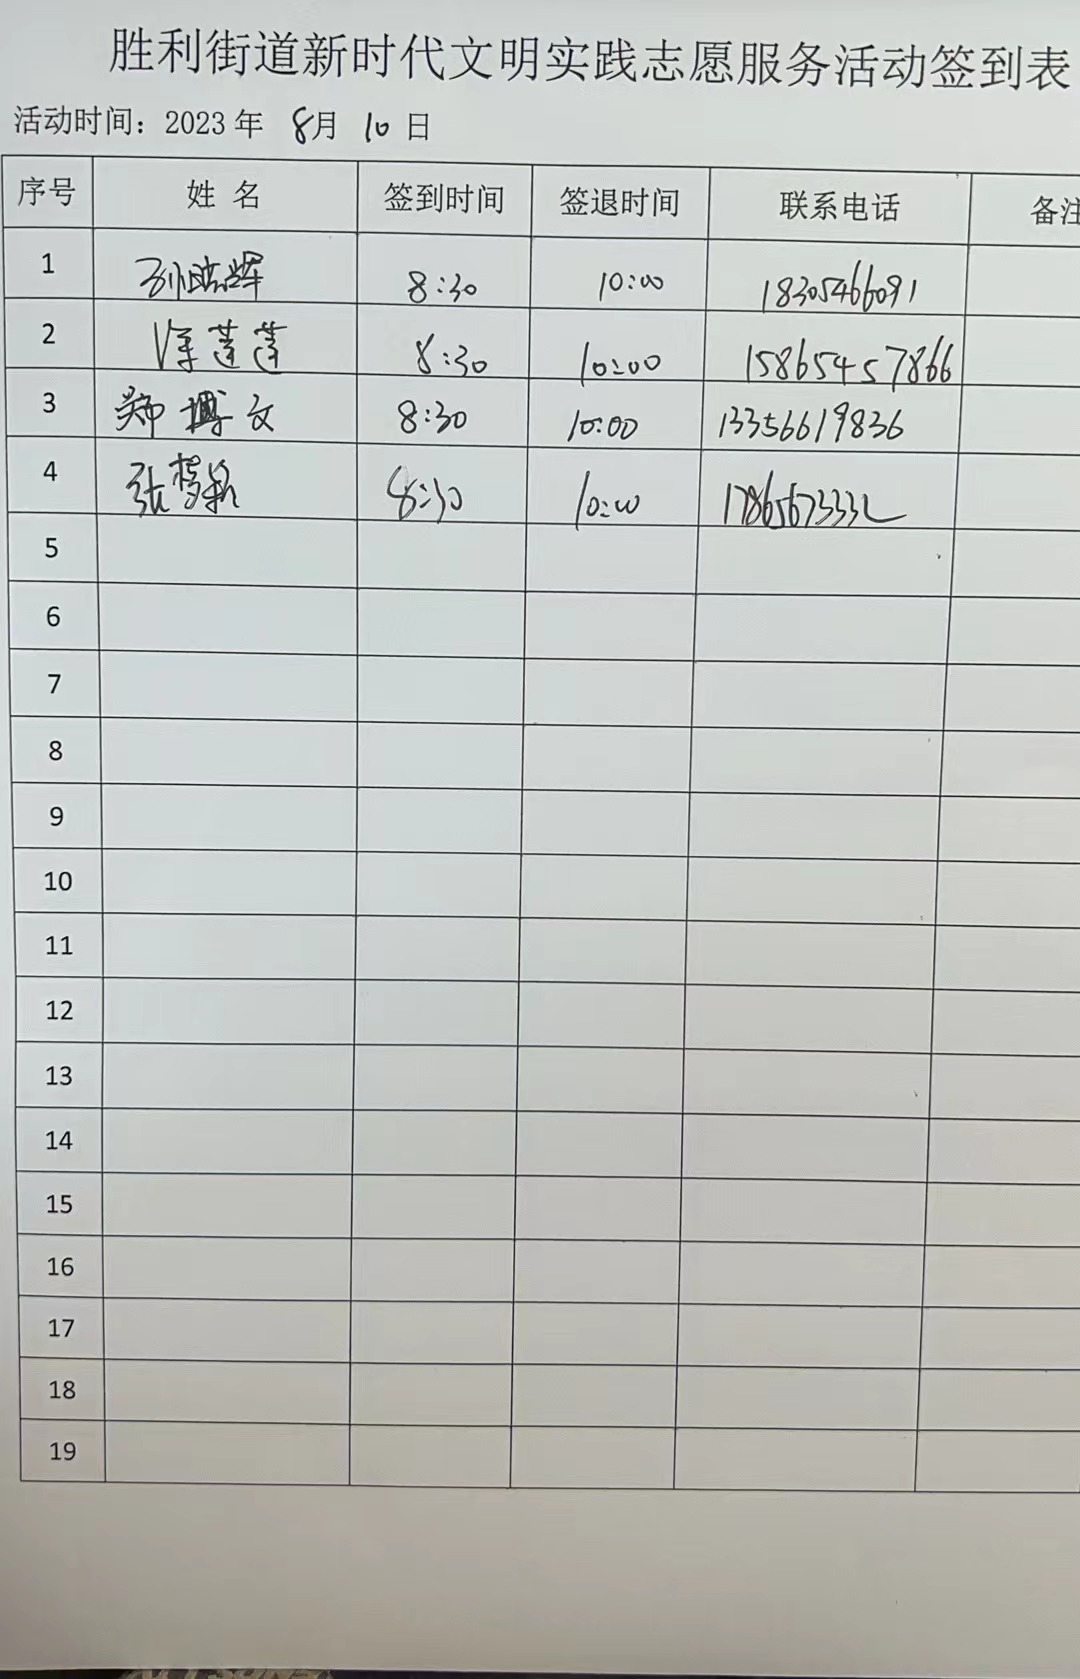 胜利街道新时代文明实践志愿服务活动签到表
活动时间：2023年 8月 10日
序号 姓 名 签到时间 签退时间 联系电话 备注
1 孙浩辉 8:30 10:00 18305466091
2 徐莲莲 8:30 10:00 15865457866
3 郑博文 8:30 10:00 13356619836
4 张 8:30 10:00 17865673332
5
6
7
8
9
10
11
12
13
14
15
16
17
18
19